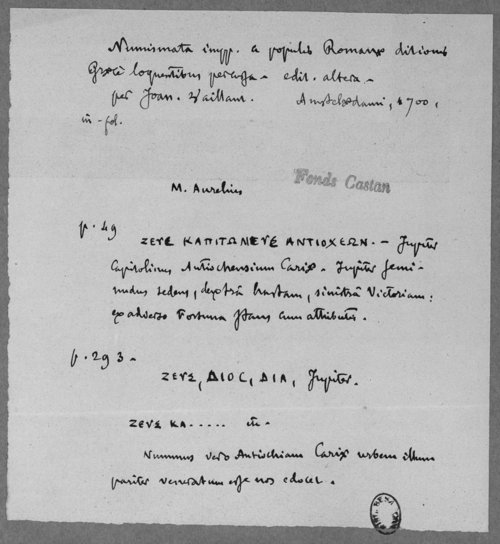 Numismata impp. a populis Romanæ ditionis
Græcè loquentibus percussa - edit. altera -
per Joan. Vaillant. Amstelædami, 1700,
in-fol.
Fonds Castan
M. Aurelius
p. 49
ΖΕΥΣ ΚΑΠΙΤΩΛΙΕΥΣ ΑΝΤΙΟΧΕΩΝ. - Jupiter
Capitolinus Antiochensium Cariæ. Jupiter semi-
nudus sedens, dextrâ hastam, sinistrâ Victoriam:
ex adverso Fortuna stans cum attributis.
p. 293 -
ΖΕΥΣ, ΔΙΟϹ, ΔΙΑ, Jupiter.
ΖΕΥΣ ΚΑ.....
Nummus vero Antiochiam Cariæ urbem illum
pariter veneratum esse nos edocet.